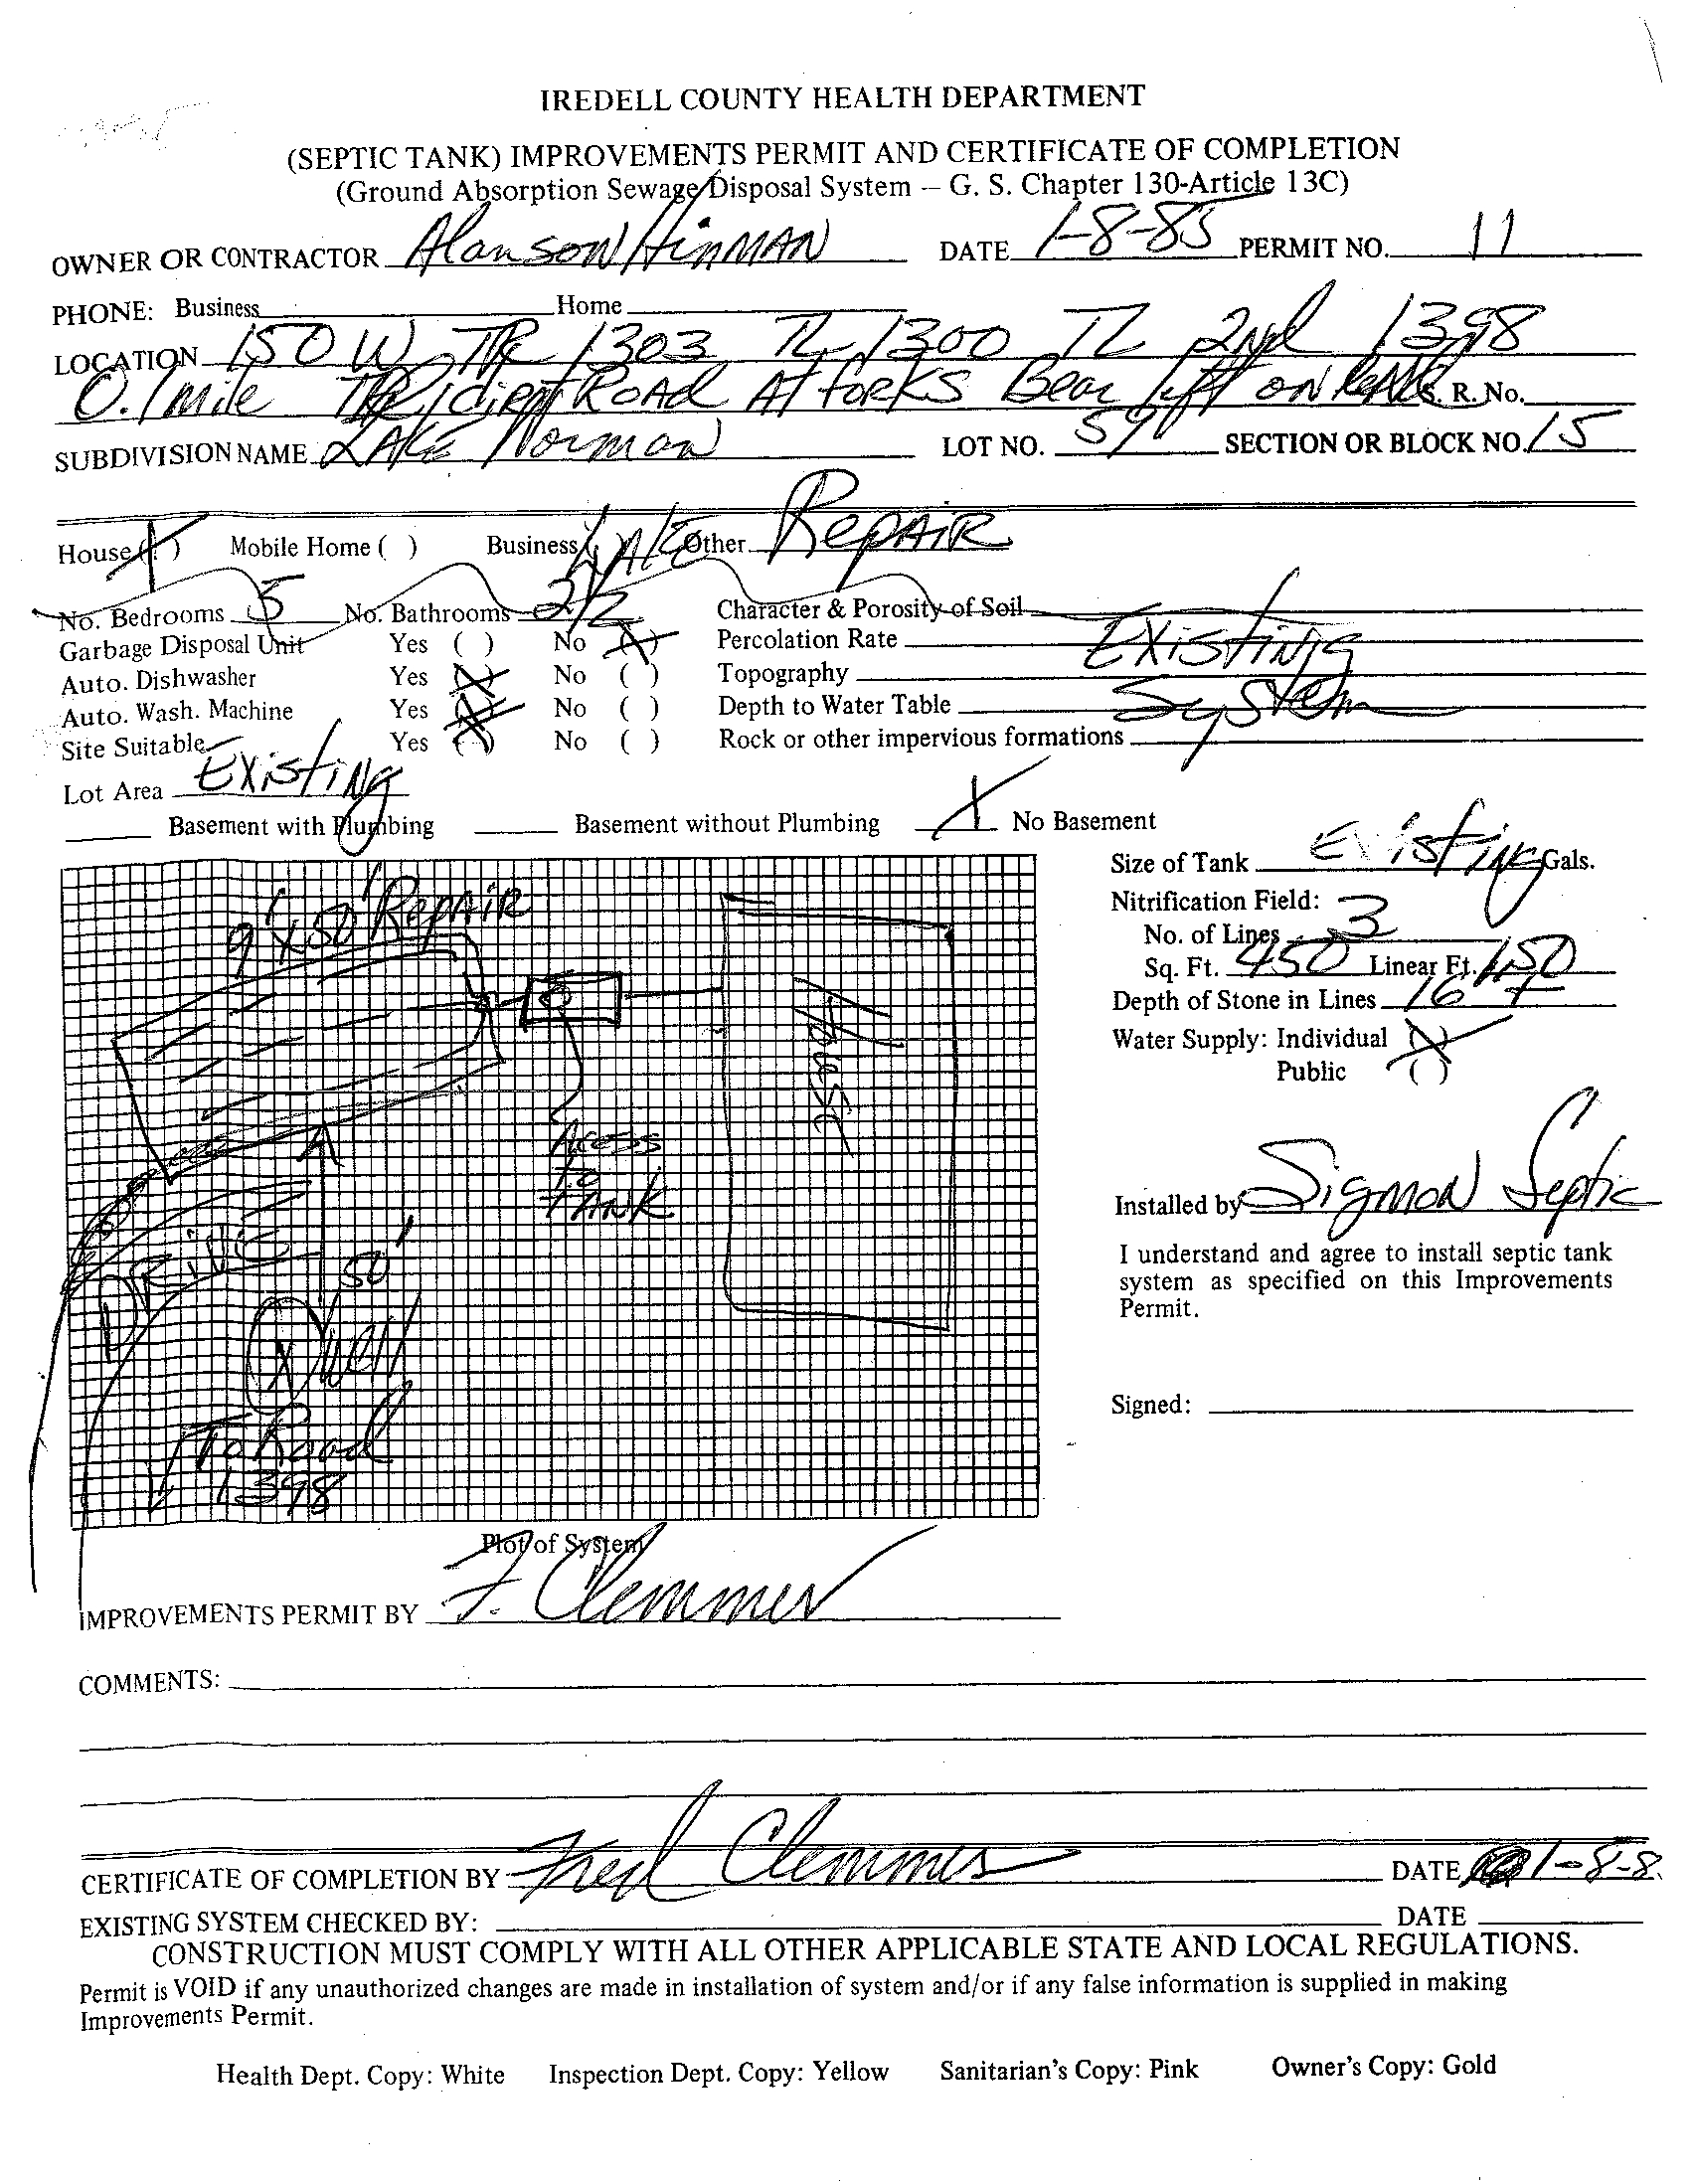 IREDELL COUNTY HEALTH DEPARTMENT
(SEPTIC TANK) IMPROVEMENTS PERMIT AND CERTIFICATE OF COMPLETION
(Ground Absorption Sewage Disposal System – G. S. Chapter 130-Article 13C)
OWNER OR CONTRACTOR Alanson Hinman DATE 1-8-85 PERMIT NO. 11
PHONE: Business Home
LOCATION 150 W TR 1303 TL 1300 TL 2nd 1398
0.1 mile TR dirt Road At forks Bear left on S. R. No.
SUBDIVISION NAME LAKE Norman LOT NO. 59 SECTION OR BLOCK NO. 15
House ( ) Mobile Home ( ) Business ( ) Other Repair
No. Bedrooms No. Bathrooms 2 1/2 Character & Porosity of Soil
Garbage Disposal Unit Yes ( ) No (X) Percolation Rate Existing
Auto. Dishwasher Yes (X) No ( ) Topography
Auto. Wash. Machine Yes (X) No ( ) Depth to Water Table System
Site Suitable Yes ( ) No ( ) Rock or other impervious formations
Lot Area Existing
Basement with Plumbing Basement without Plumbing X No Basement
Size of Tank Existing Gals.
Nitrification Field:
No. of Lines 3
Sq. Ft. 450 Linear Ft. 150
Depth of Stone in Lines 16"
Water Supply: Individual (X)
Public ( )
9'x50' Repair
House
Acess
to
tank
DRIVE
50'
X Well
To Road
1398
Installed by Sigmon Septic
I understand and agree to install septic tank
system as specified on this Improvements
Permit.
Signed:
Plot of System
IMPROVEMENTS PERMIT BY F. Clemmer
COMMENTS:
CERTIFICATE OF COMPLETION BY Fred Clemmer DATE 1-8-8
EXISTING SYSTEM CHECKED BY: DATE
CONSTRUCTION MUST COMPLY WITH ALL OTHER APPLICABLE STATE AND LOCAL REGULATIONS.
Permit is VOID if any unauthorized changes are made in installation of system and/or if any false information is supplied in making
Improvements Permit.
Health Dept. Copy: White Inspection Dept. Copy: Yellow Sanitarian's Copy: Pink Owner's Copy: Gold